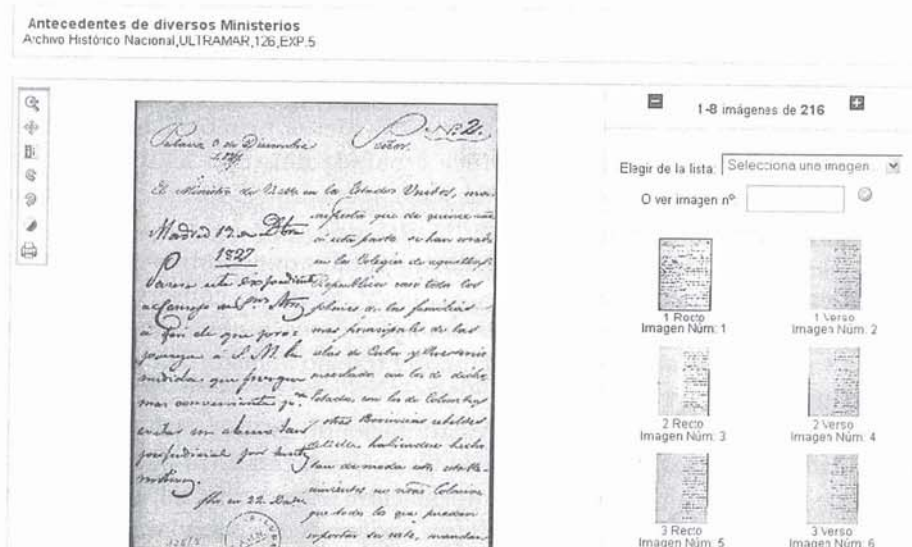 Antecedentes de diversos Ministerios
Archivo Histórico Nacional,ULTRAMAR,126,EXP.5
1-8 imágenes de 216
Elegir de la lista: Selecciona una imagen
O ver imagen nº
1 Recto
Imagen Núm: 1
1 Verso
Imagen Núm: 2
2 Recto
Imagen Núm: 3
2 Verso
Imagen Núm: 4
3 Recto
Imagen Núm: 5
3 Verso
Imagen Núm: 6
Nº 2.
Palacio 9 de Diciembre
Señor.
El Ministro de V.M. en los Estados Unidos, ma-
nifiesta que de quince años
á esta parte se han criado
en los Colegios de aquella
Republica casi todos los
jóvenes de las familias
mas principales de las
islas de Cuba y Puertorrico
mezclados con los de dichos
Estados, con los de Colombia
y otras Provincias rebeldes
habiendose hecho
tan de moda estos estable-
cimientos en ntras Colonias
que todos los que pueden
soportar su costo, mandan
Madrid 12 de Dbre
1827
Pase este Expediente
al Consejo de Sres Mtros
á fin de que pro-
ponga á S.M. la
medida que juzgue
mas conveniente pa
evitar un abuso tan
perjudicial por tantos
motivos.
fho en 22
126/5